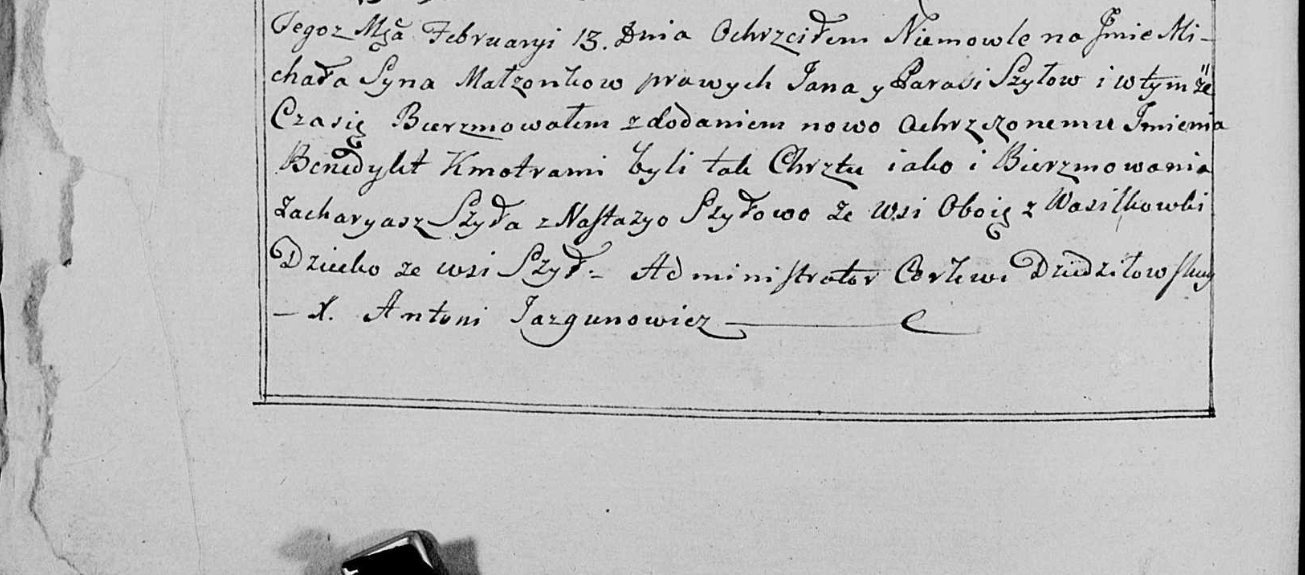 Tegoz Mca Februaryi 13. Dnia Ochrzciłem Niemowle na Jmie Mi-
chała Syna Małzonkow prawych Jana y Parasi Szyłow i w tymże
Czasię Bierzmowałem z dodaniem nowo Ochrzczonemu Jmienia
Benedykt Kmotrami byli tak Chrztu iako i Bierzmowania
Zacharyasz Szyła z Nastazyo Szyłowo ze wsi Oboię z Wasilkowki
Dziecko ze wsi Szył - Administrator Cerkwi Dziedziłowskuy
- X. Antoni Jazgunowicz